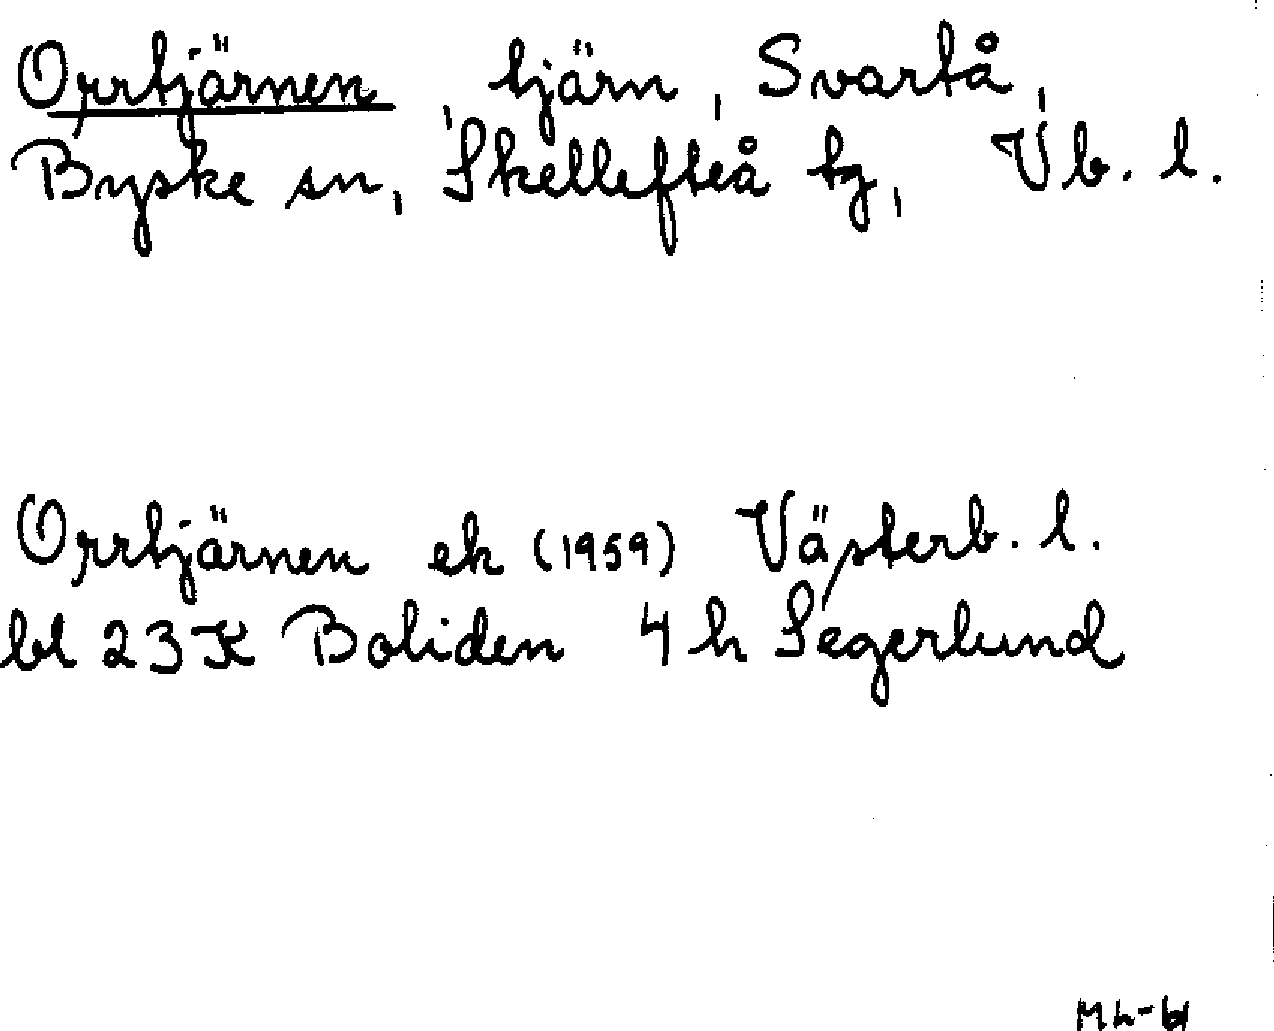 Orrtjärnen, tjärn, Svartå,
Byske sn, Skellefteå tg, Vb. l.
Orrtjärnen ek (1959) Västerb. l.
bl 23 K Boliden 4 h Segerlund